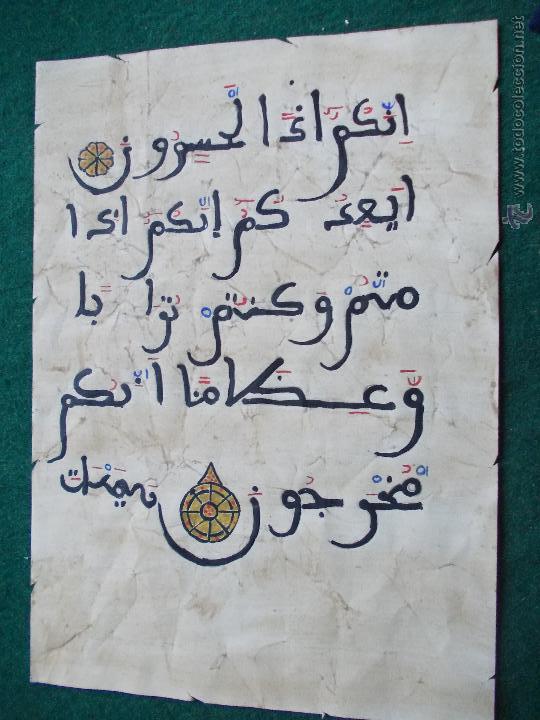 انكم اذا لخسرون
ايعد كم انكم اذا
متم وكنتم ترا با
وعظاما انكم
مخرجون هيهات
www.todocoleccion.net